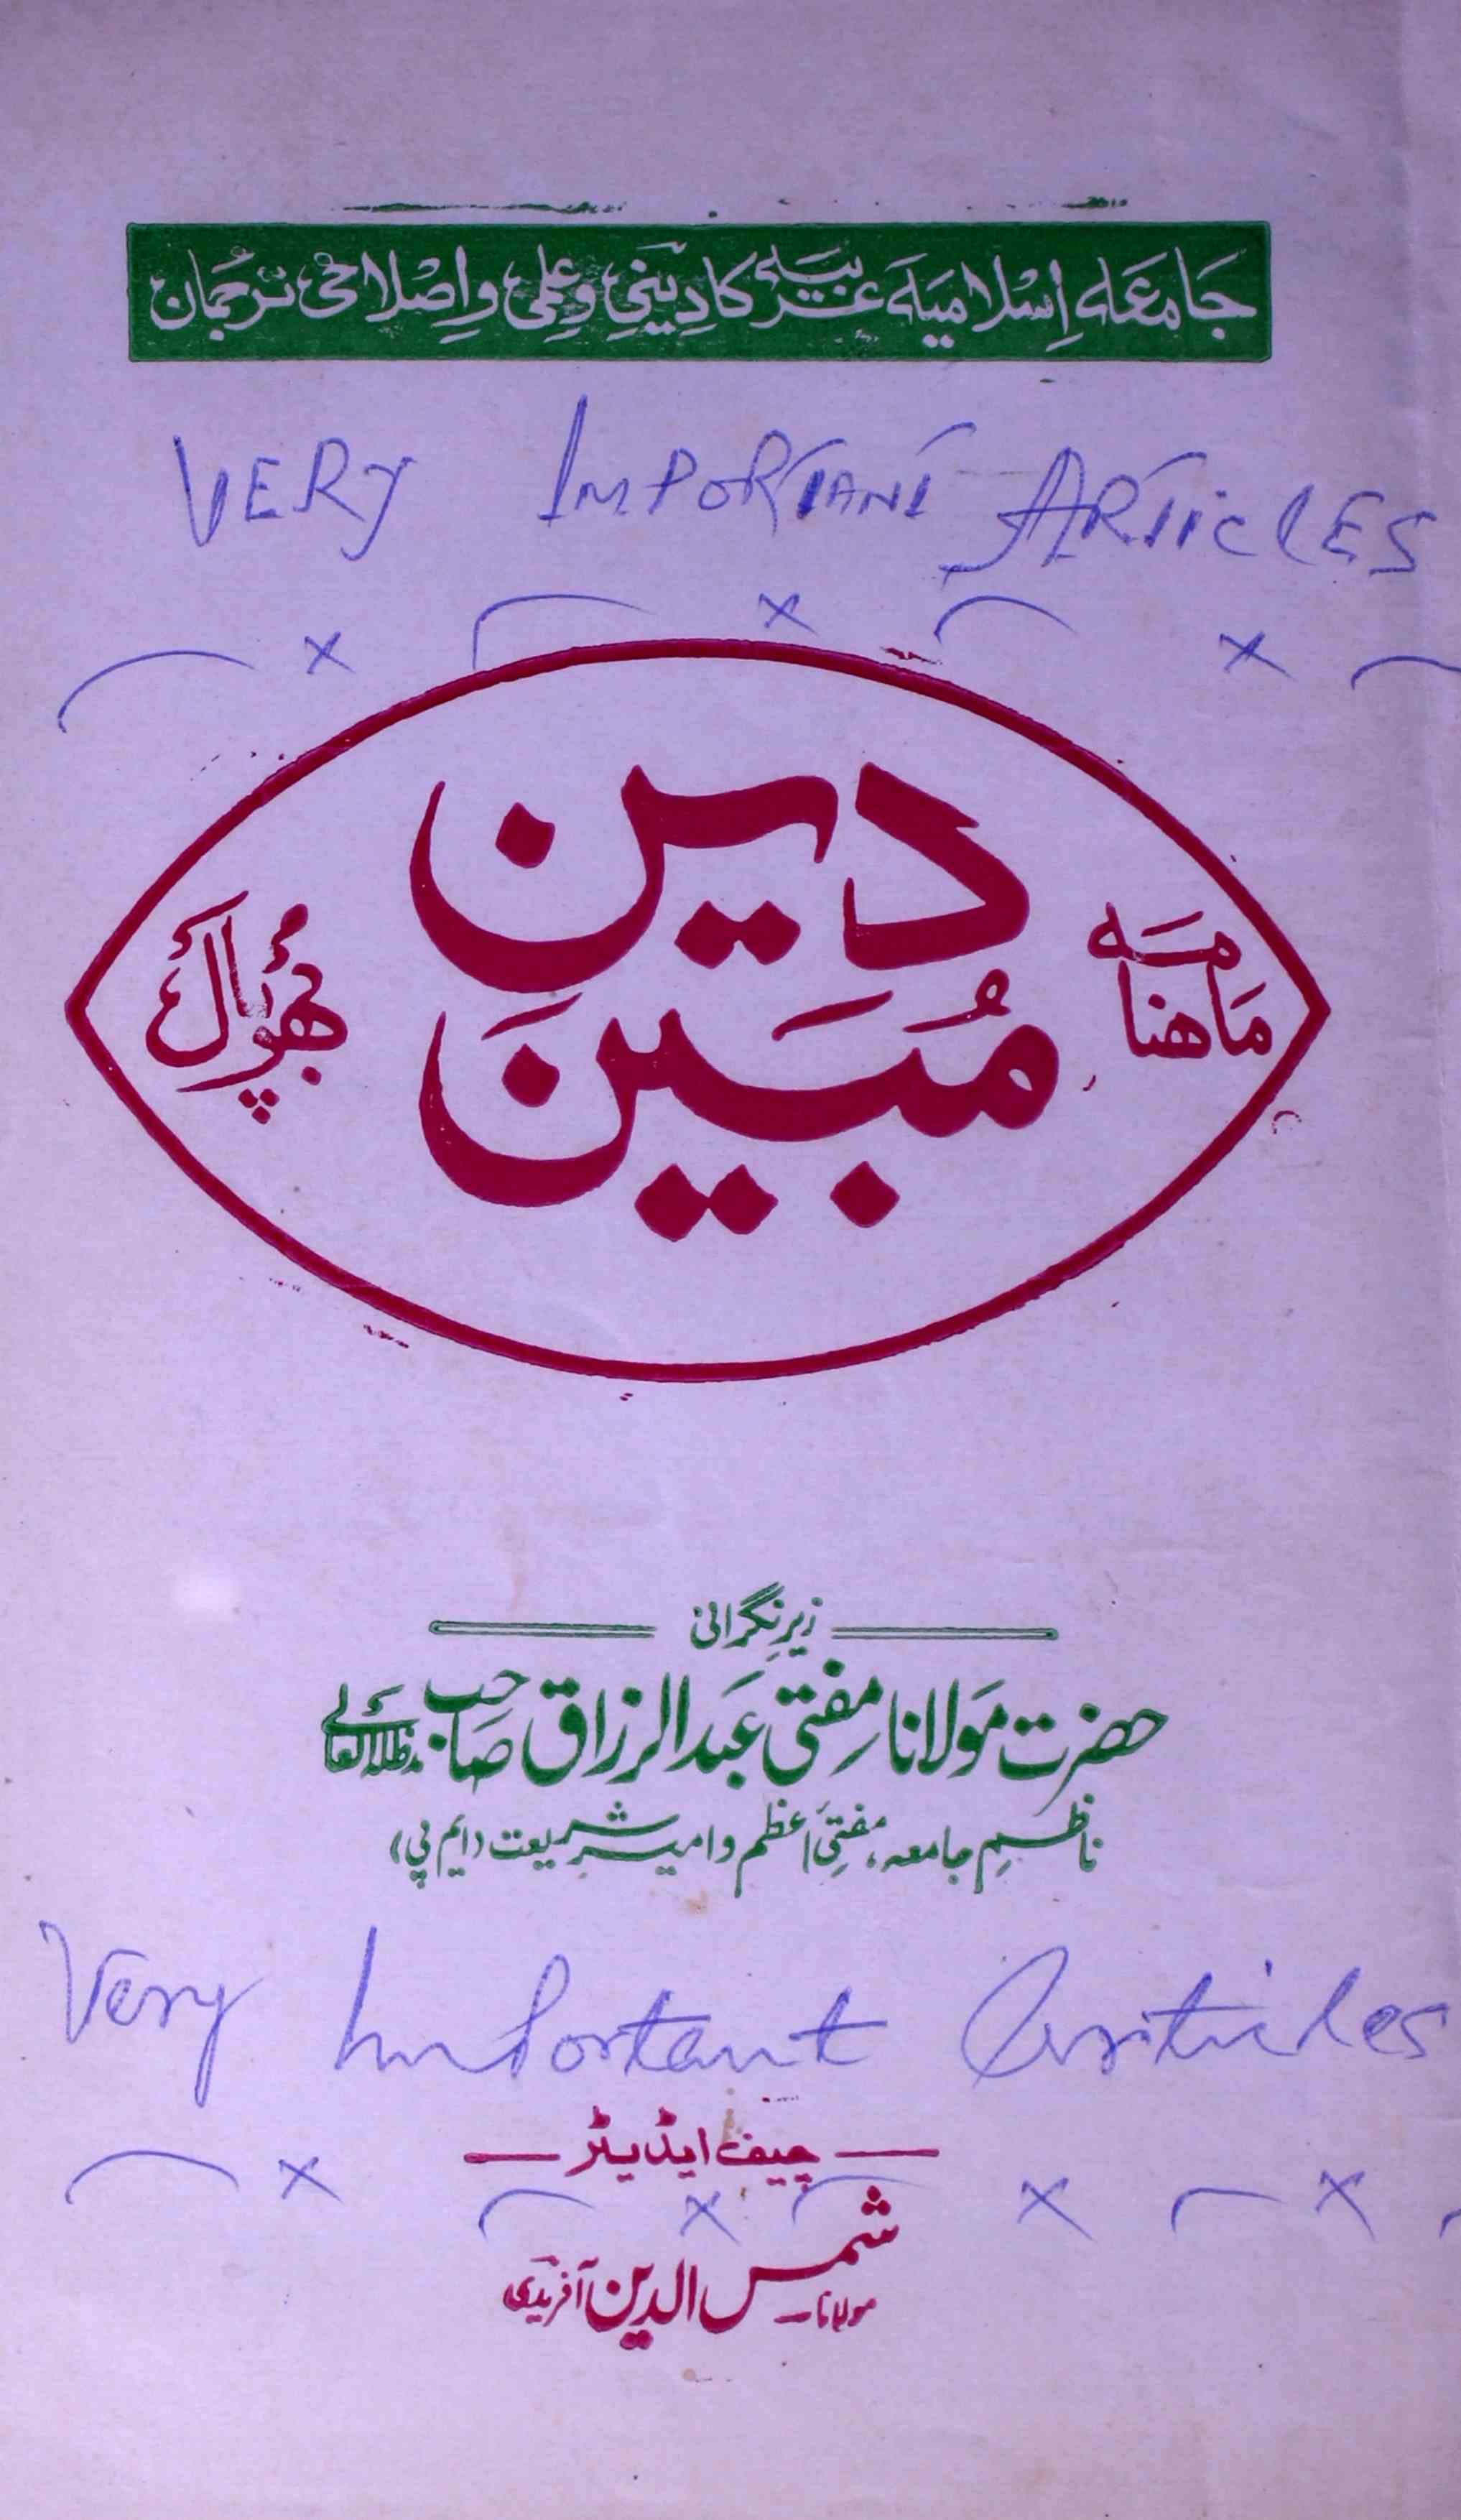 جامعہ اسلامیہ عربیہ کا دینی و علمی و اصلاحی ترجمان
VERY IMPORTANT ARTICLES
ماهنامه
دین
مُبین
بھوپال
زیرِ نگرانی
حضرت مولانا مفتی عبدالرزاق صاحب مدظلہ العالی
ناظمِ جامعہ، مفتیٔ اعظم و امیرِ شریعت (ایم پی)
Very Important Articles
چیف ایڈیٹر
مولانا شمس الدین آفریدی